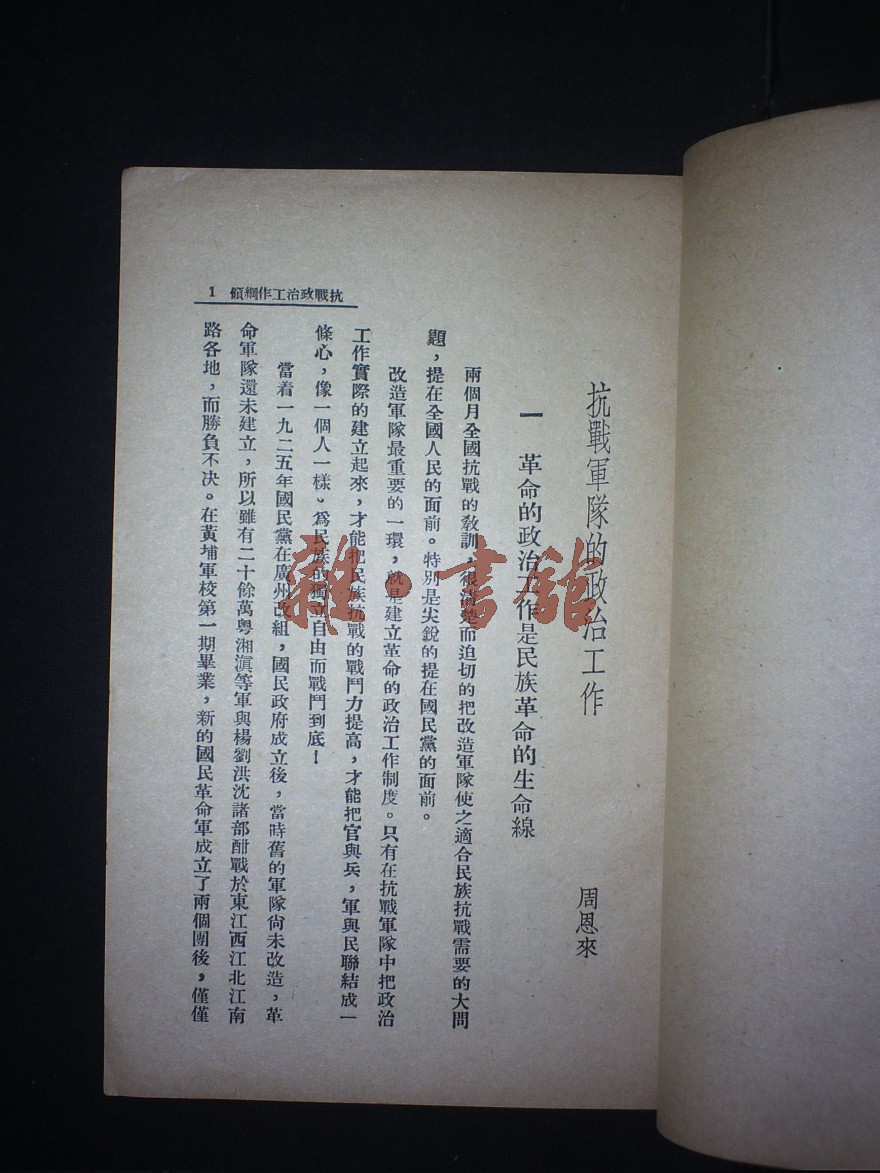 抗戰政治工作綱領 1
抗戰軍隊的政治工作
周恩來
一 革命的政治工作是民族革命的生命線
兩個月全國抗戰的敎訓，很淸楚而迫切的把改造軍隊使之適合民族抗戰需要的大問
題，提在全國人民的面前。特別是尖銳的提在國民黨的面前。
改造軍隊最重要的一環，就是建立革命的政治工作制度。只有在抗戰軍隊中把政治
工作實際的建立起來，才能把民族抗戰的戰鬥力提高，才能把官與兵，軍與民聯結成一
條心，像一個人一樣。爲民族的獨立自由而戰鬥到底！
當着一九二五年國民黨在廣州改組，國民政府成立後，當時舊的軍隊尙未改造，革
命軍隊還未建立，所以雖有二十餘萬粤湘滇等軍與楊劉洪沈諸部酣戰於東江西江北江南
路各地，而勝負不决。在黃埔軍校第一期畢業，新的國民革命軍成立了兩個團後，僅僅
雜·書館